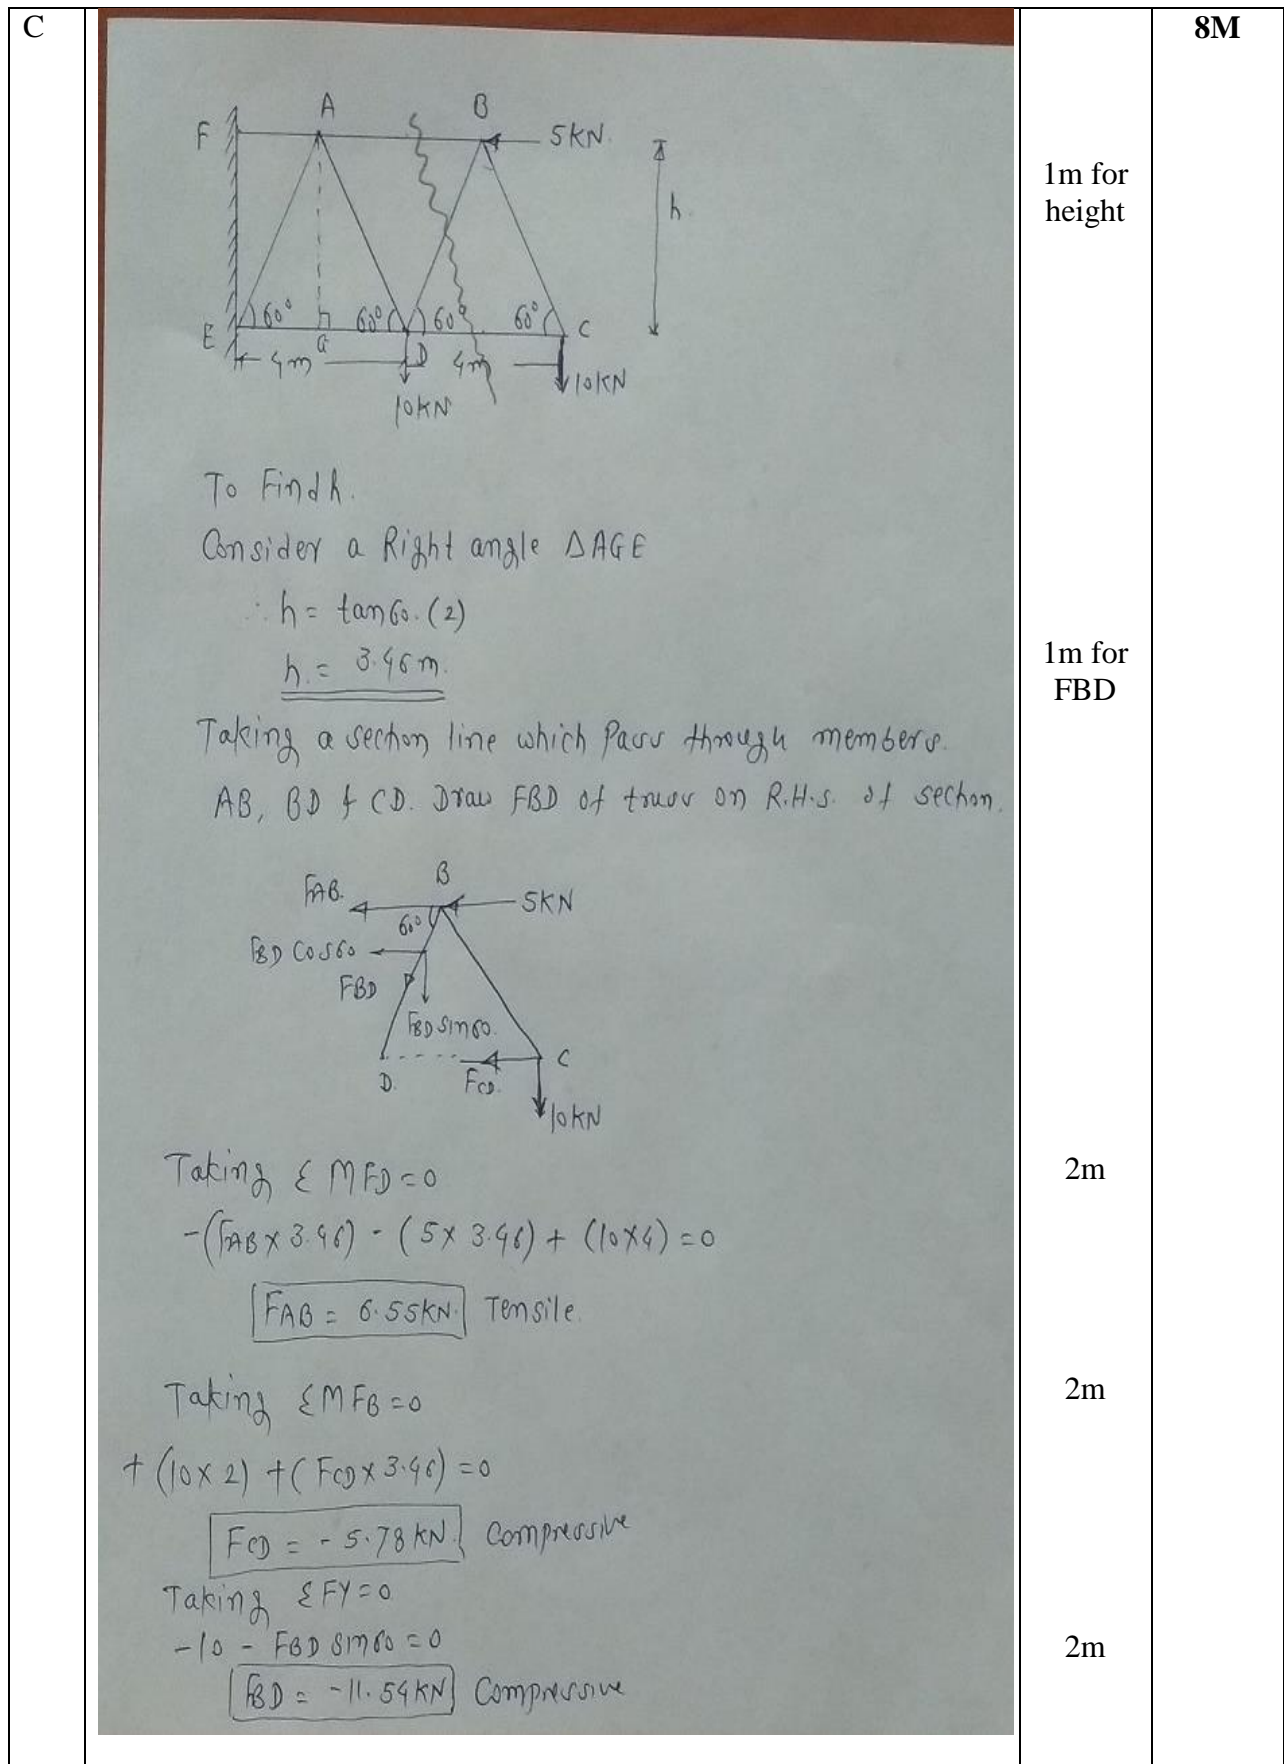 C
8M
A
B
F
5KN.
1m for
height
h.
60°
60°
60°
60°
E
G
D
C
4m
4m
10KN
10KN
To Find h.
Consider a Right angle ΔAGE
∴ h = tan60.(2)
h. = 3.46m.
1m for
FBD
Taking a section line which Pass through members.
AB, BD & CD. Draw FBD of truss on R.H.S. of section.
B
FAB.
5KN
60°
FBD COS60
FBD
FBD Sin60.
D.
FCD.
C
10KN
Taking ΣMFD=0
2m
-(FAB X 3.46) - (5X 3.46) + (10X4) = 0
FAB = 6.55KN. Tensile.
Taking ΣMFB=0
2m
+ (10X2) +(FCDX3.46) =0
FCD = - 5.78 KN. Compressive
Taking ΣFY=0
-10 - FBD Sin60 =0
2m
FBD = -11.54KN Compressive